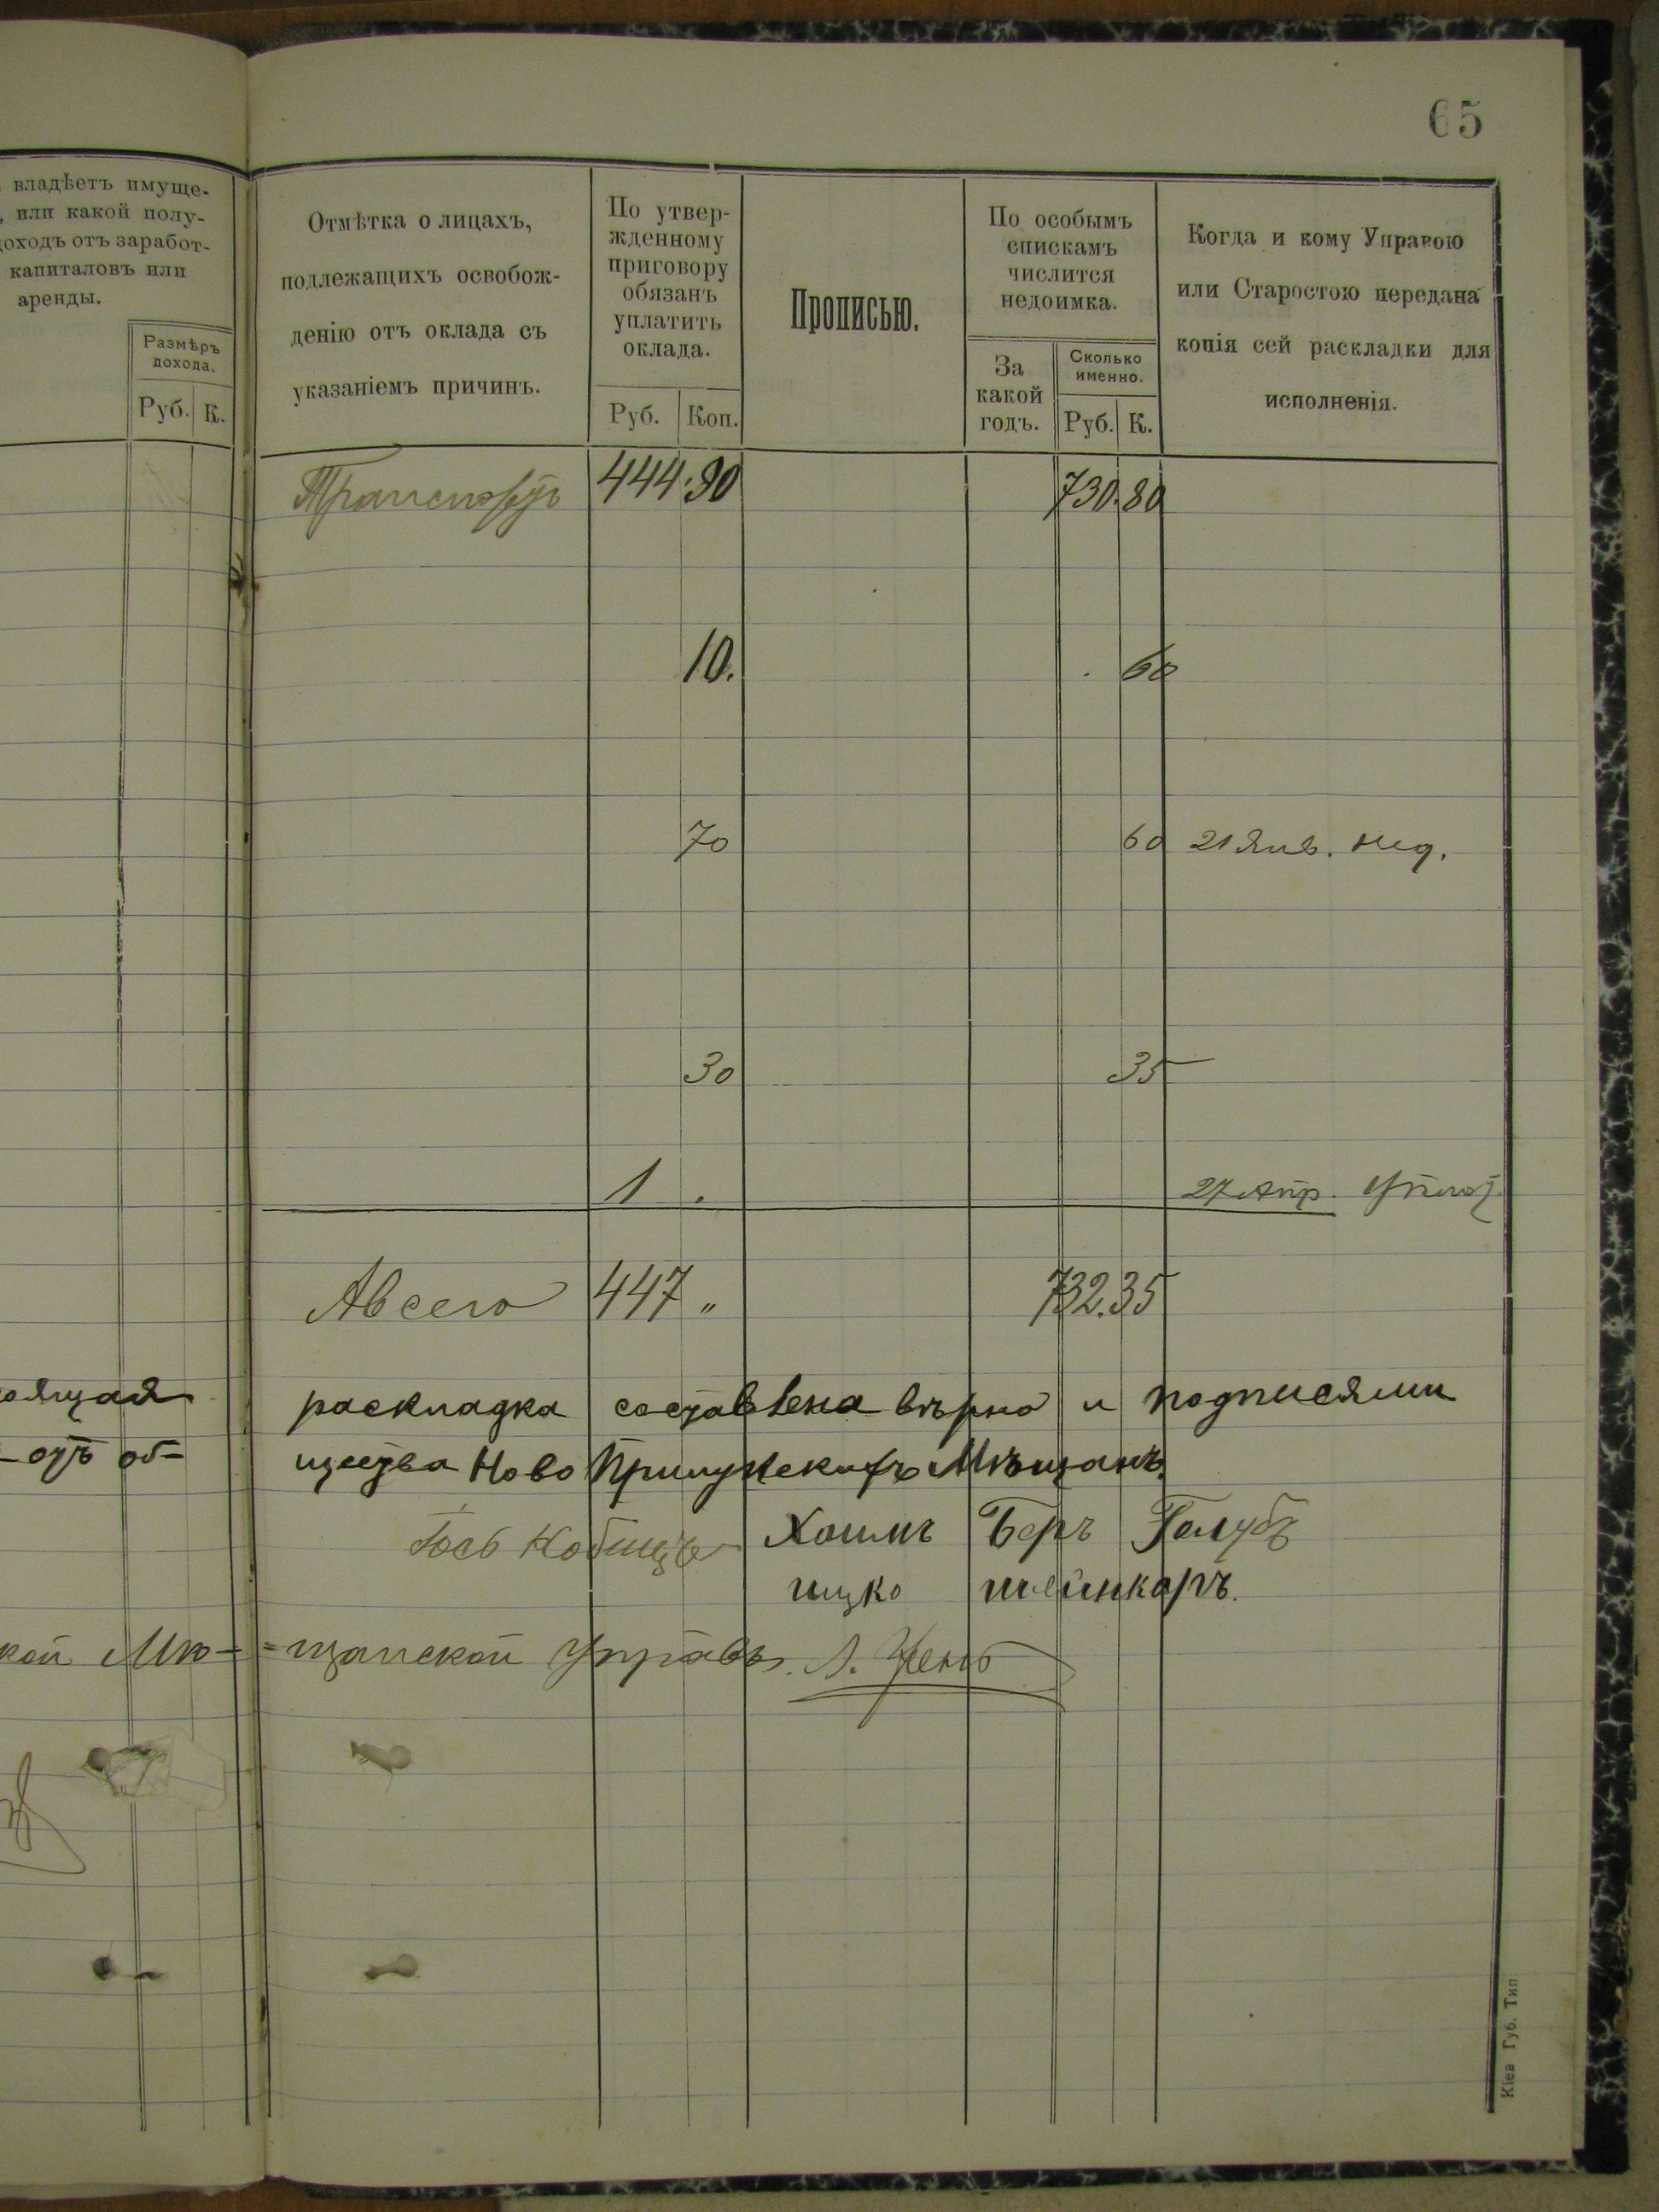 65
владѣетъ имуще-
, или какой полу-
доходъ отъ заработ-
капиталовъ или
аренды.
Размѣръ
дохода.
Руб. К.
Отмѣтка о лицахъ,
подлежащихъ освобож-
денію отъ оклада съ
указаніемъ причинъ.
По утвер-
жденному
приговору
обязанъ
уплатить
оклада.
Руб. Коп.
Прописью.
По особымъ
спискамъ
числится
недоимка.
За
какой
годъ.
Сколько
именно.
Руб. К.
Когда и кому Управою
или Старостою передана
копія сей раскладки для
исполненія.
Транспортъ 444.90 730.80
10. 60
70 60 21 Янв.
30 35
1 . 27 Апр.
А всего 447 „ 732.35
оящая раскладка составлена вѣрно и подписями
- отъ об- щества Ново Прилукскихъ Мѣщанъ.
Хаимъ Беръ Голубъ
ицко шейнкаръ.
кой Мѣ- =щанской Управы.
Кіев Губ. Тип.